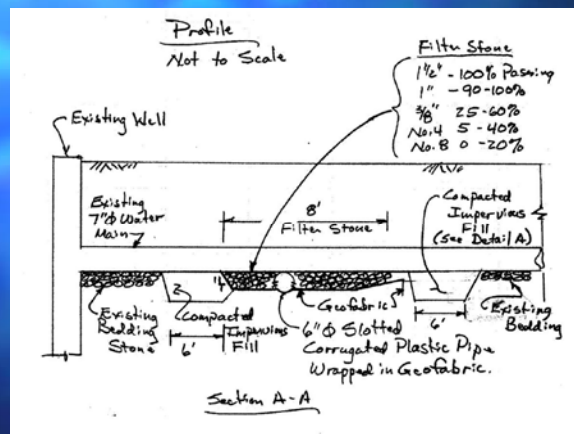 Profile
Not to Scale
Filter Stone
1 1/2" - 100% Passing
1" - 90-100%
3/8" 25-60%
No. 4 5-40%
No. 8 0-20%
Existing Well
Existing
7"Φ Water
Main
8'
Filter Stone
Compacted
Impervious
Fill
(See Detail A)
Existing
Bedding
Stone
6'
Compacted
Impervious
Fill
Geofabric
6"Φ Slotted
Corrugated Plastic Pipe
Wrapped in Geofabric.
6'
Existing
Bedding
Section A-A